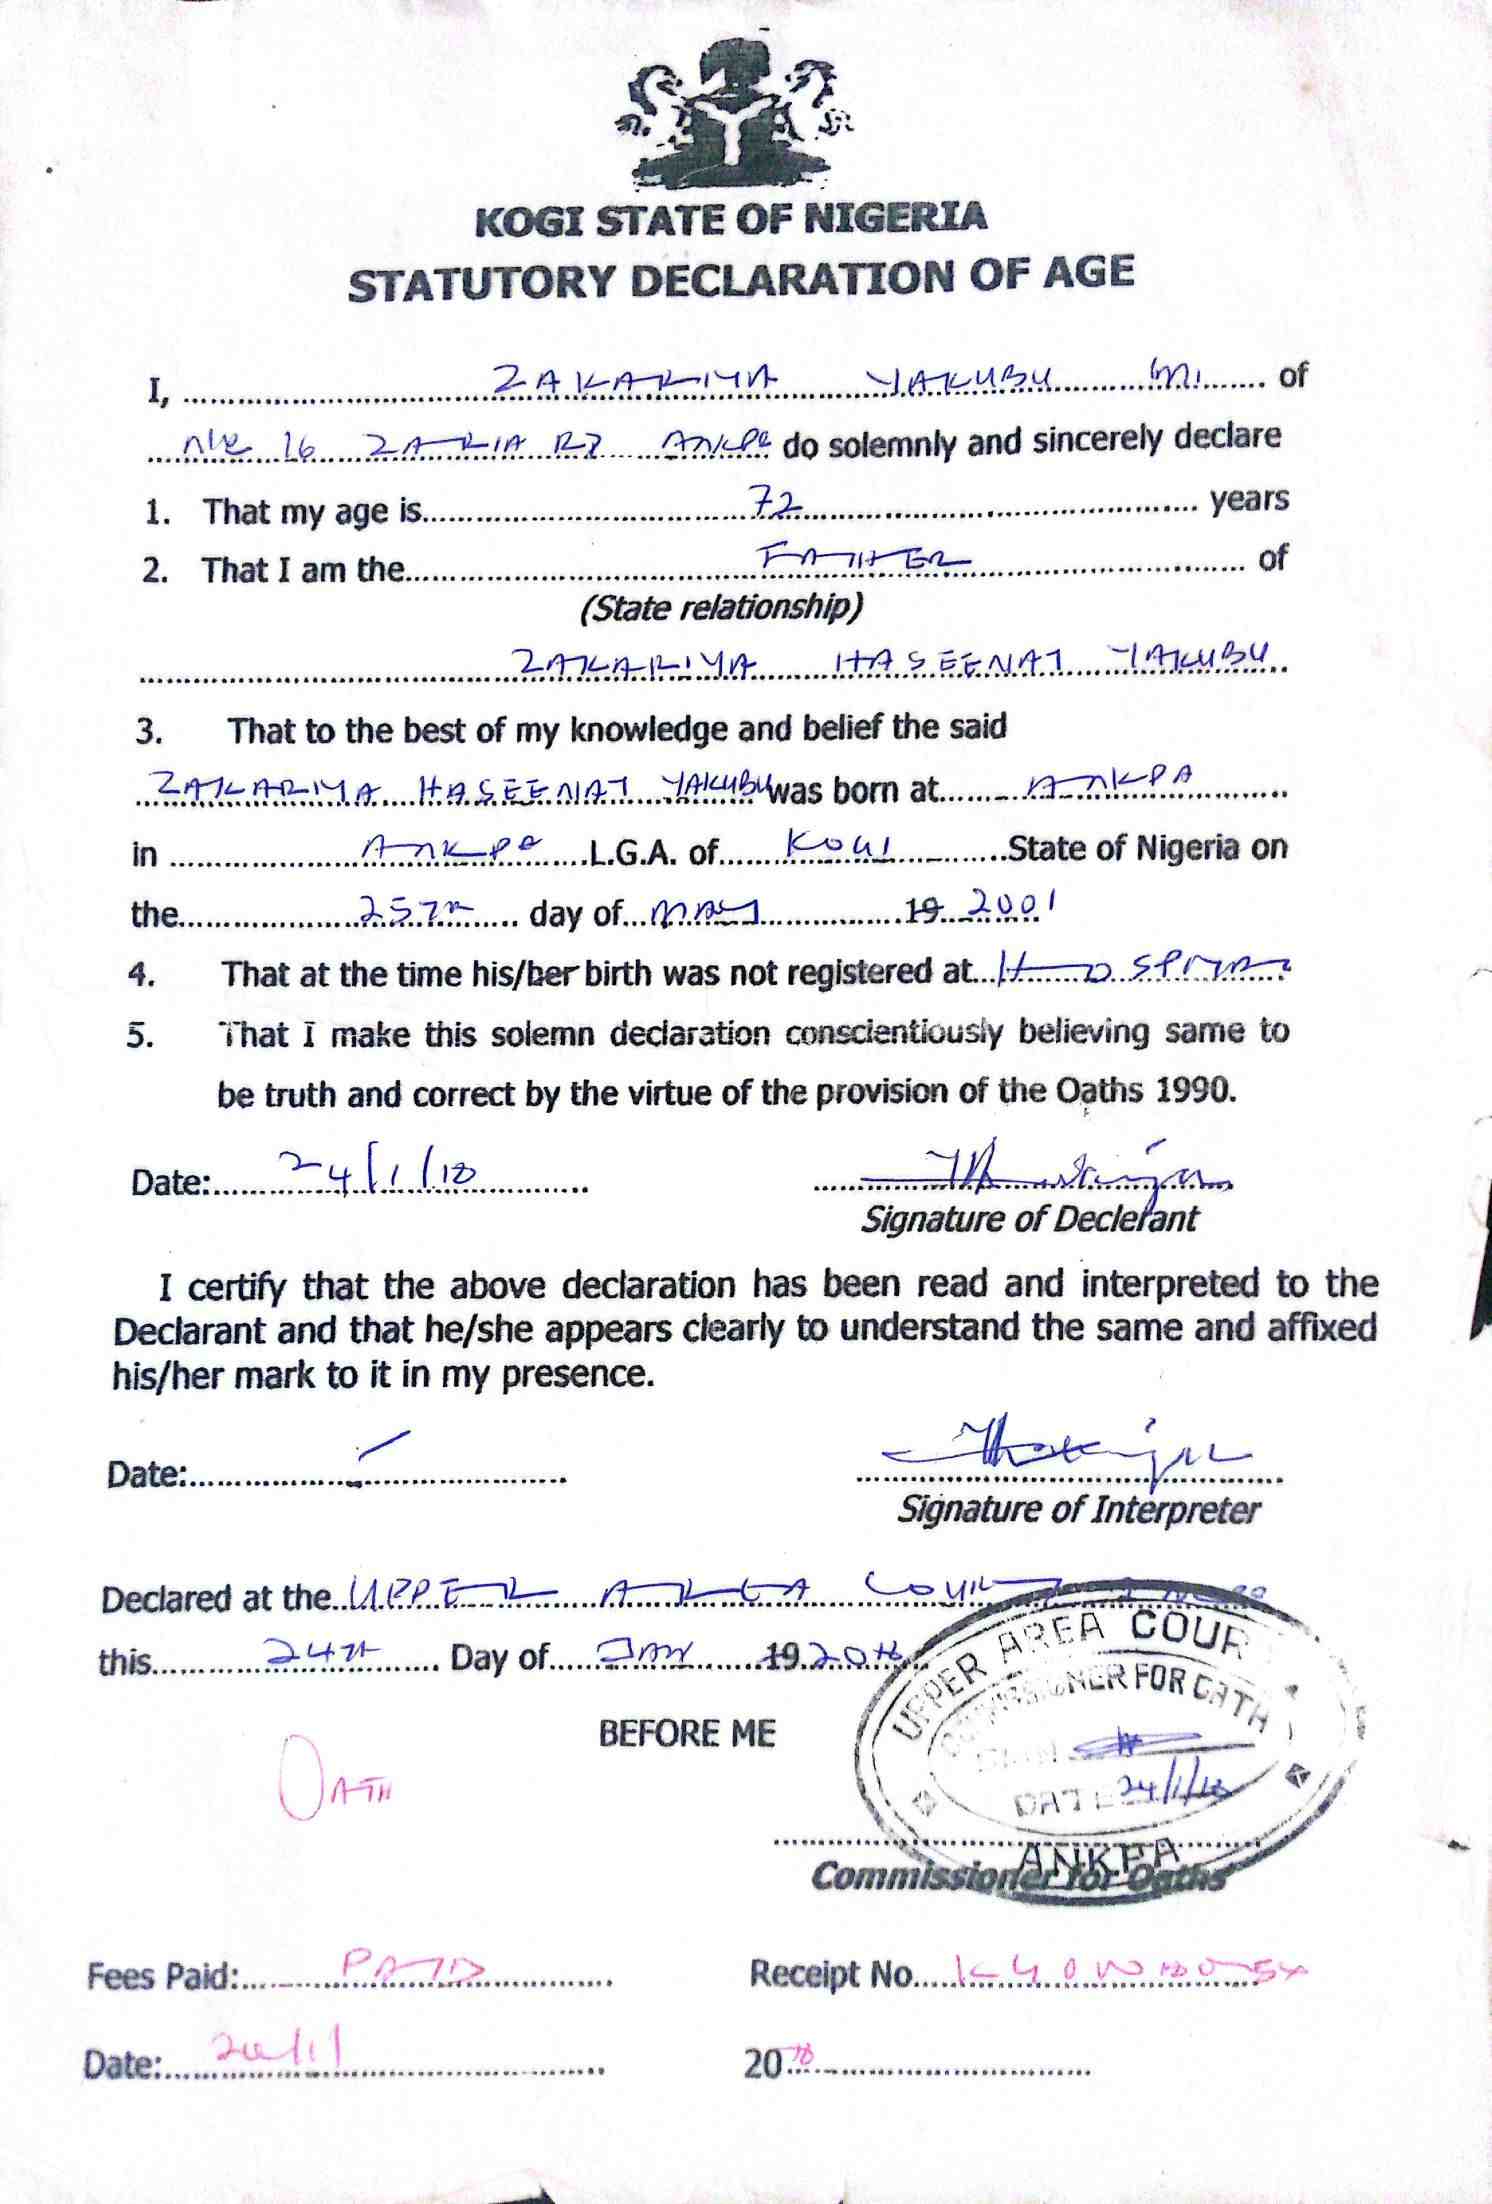 KOGI STATE OF NIGERIA
STATUTORY DECLARATION OF AGE
I, ZAKARIYA YAKUBU M. of
16 ZARIA RD ANKPA do solemnly and sincerely declare
1. That my age is 72 years
2. That I am the FATHER of
(State relationship)
ZAKARIYA HASEENAT YAKUBU
3. That to the best of my knowledge and belief the said
ZAKARIYA HASEENAT YAKUBU was born at ANKPA
in ANKPA L.G.A. of KOGI State of Nigeria on
the 25TH day of MAY 19 2001
4. That at the time his/her birth was not registered at HOSPITAL
5. That I make this solemn declaration conscientiously believing same to
be truth and correct by the virtue of the provision of the Oaths 1990.
Date: 24/1/18
Signature of Declerant
I certify that the above declaration has been read and interpreted to the
Declarant and that he/she appears clearly to understand the same and affixed
his/her mark to it in my presence.
Date:
Signature of Interpreter
Declared at the UPPER AREA COURT
this 24TH Day of JAN 19 2018
UPPER AREA COURT
COMMISSIONER FOR OATH
SIGN
DATE 24/1/18
ANKPA
BEFORE ME
OATH
Commissioner for Oaths
Fees Paid: PAID Receipt No.
Date: 24/1/ 2018